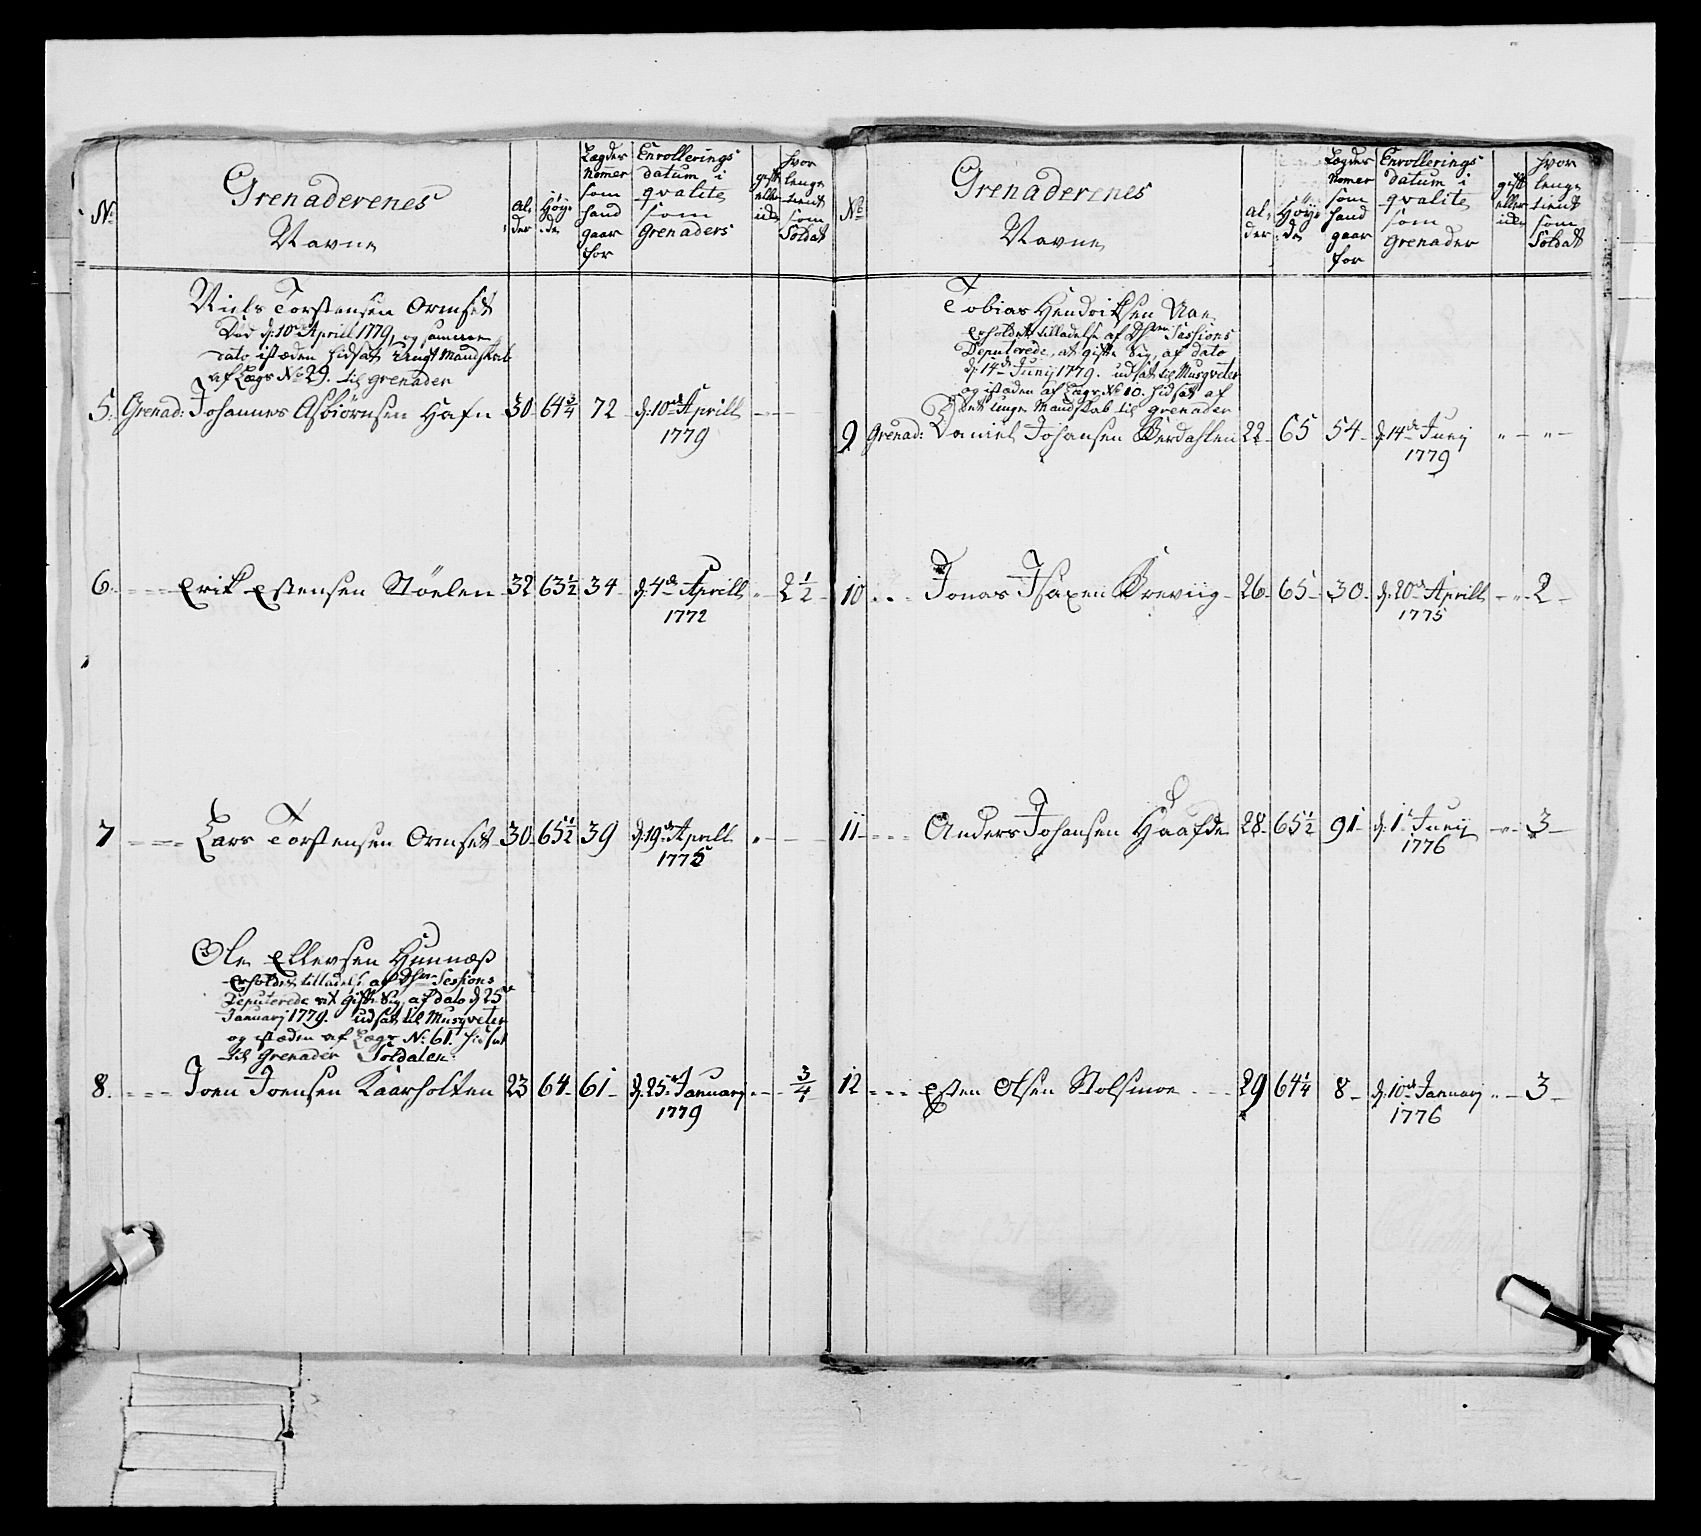 No
Grenaderenes
Navne
al-
der
Høy-
de
Lægder
Nomer
som
hand
gaar
for
Enrollerings
datum i
qvalite
som
Grenaders
gift
eller
iche
hvor
lenge
tient
som
Soldat
Niels Torstensen Ormset
Død d: 10de Aprill 1779, og samme
dato isteden hidsat ungt Mandskab
af Lægd No 29. til grenader
5. Grenad: Johannes Asbiørnsen Hafn 30 64 3/4 72 d: 10de Aprill
1779
6. Erik Estensen Støelen 32 63 1/2 34 d: 4de Aprill " 2 1/2
1772
7 Lars Torstensen Ormset 30 65 1/2 39 d: 19de Aprill "
1775
Ole Ellevsen Hunnæs
Erholdet tilladelse af Dhrr Sessions
Deputerede at gifte Sig, af dato d 25de
Januarj 1779. udsat til Musqveter
og isteden af Lægd N: 61. hidsat
til Grenader Soldaten:
8. Joen Joensen Kaarholten 23 64 61 d. 25de Januarj 3/4
1779
No
Grenaderenes
Navne
al-
der
Høy-
de
Lægder
Nomer
som
hand
gaar
for
Enrollerings
datum i
qvalite
som
Grenader
gift
eller
iche
hvor
lenge
tient
som
Soldat
Tobias Hendriksen
Erholdet tilladelse af Dhrr Sessions
Deputerede, at gifte Sig, af dato
d: 14de Junij 1779. udsat til Musqveter
og isteden af Lægd No 10. hidsat af
det unge Mandskab til grenader
9 Grenad: Daniel Johansen Berdahlen 22 65 54 d. 14de Junij " "
1779
10 Jonas Isaxen Breviig 26 65 30 d. 20de Aprill " 2
1775
11 Anders Johansen Haafde 28 65 1/2 91 d. 1te Junij " 3
1776
12 Esten Olsen Stolsmoe 29 64 1/4 8 d. 10de Januarj " 3
1776